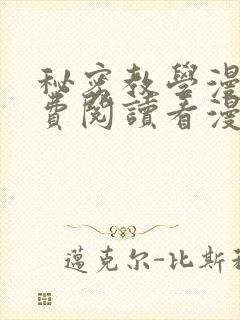 秘密教學漫
費閱讀看漫
邁克尔-比斯